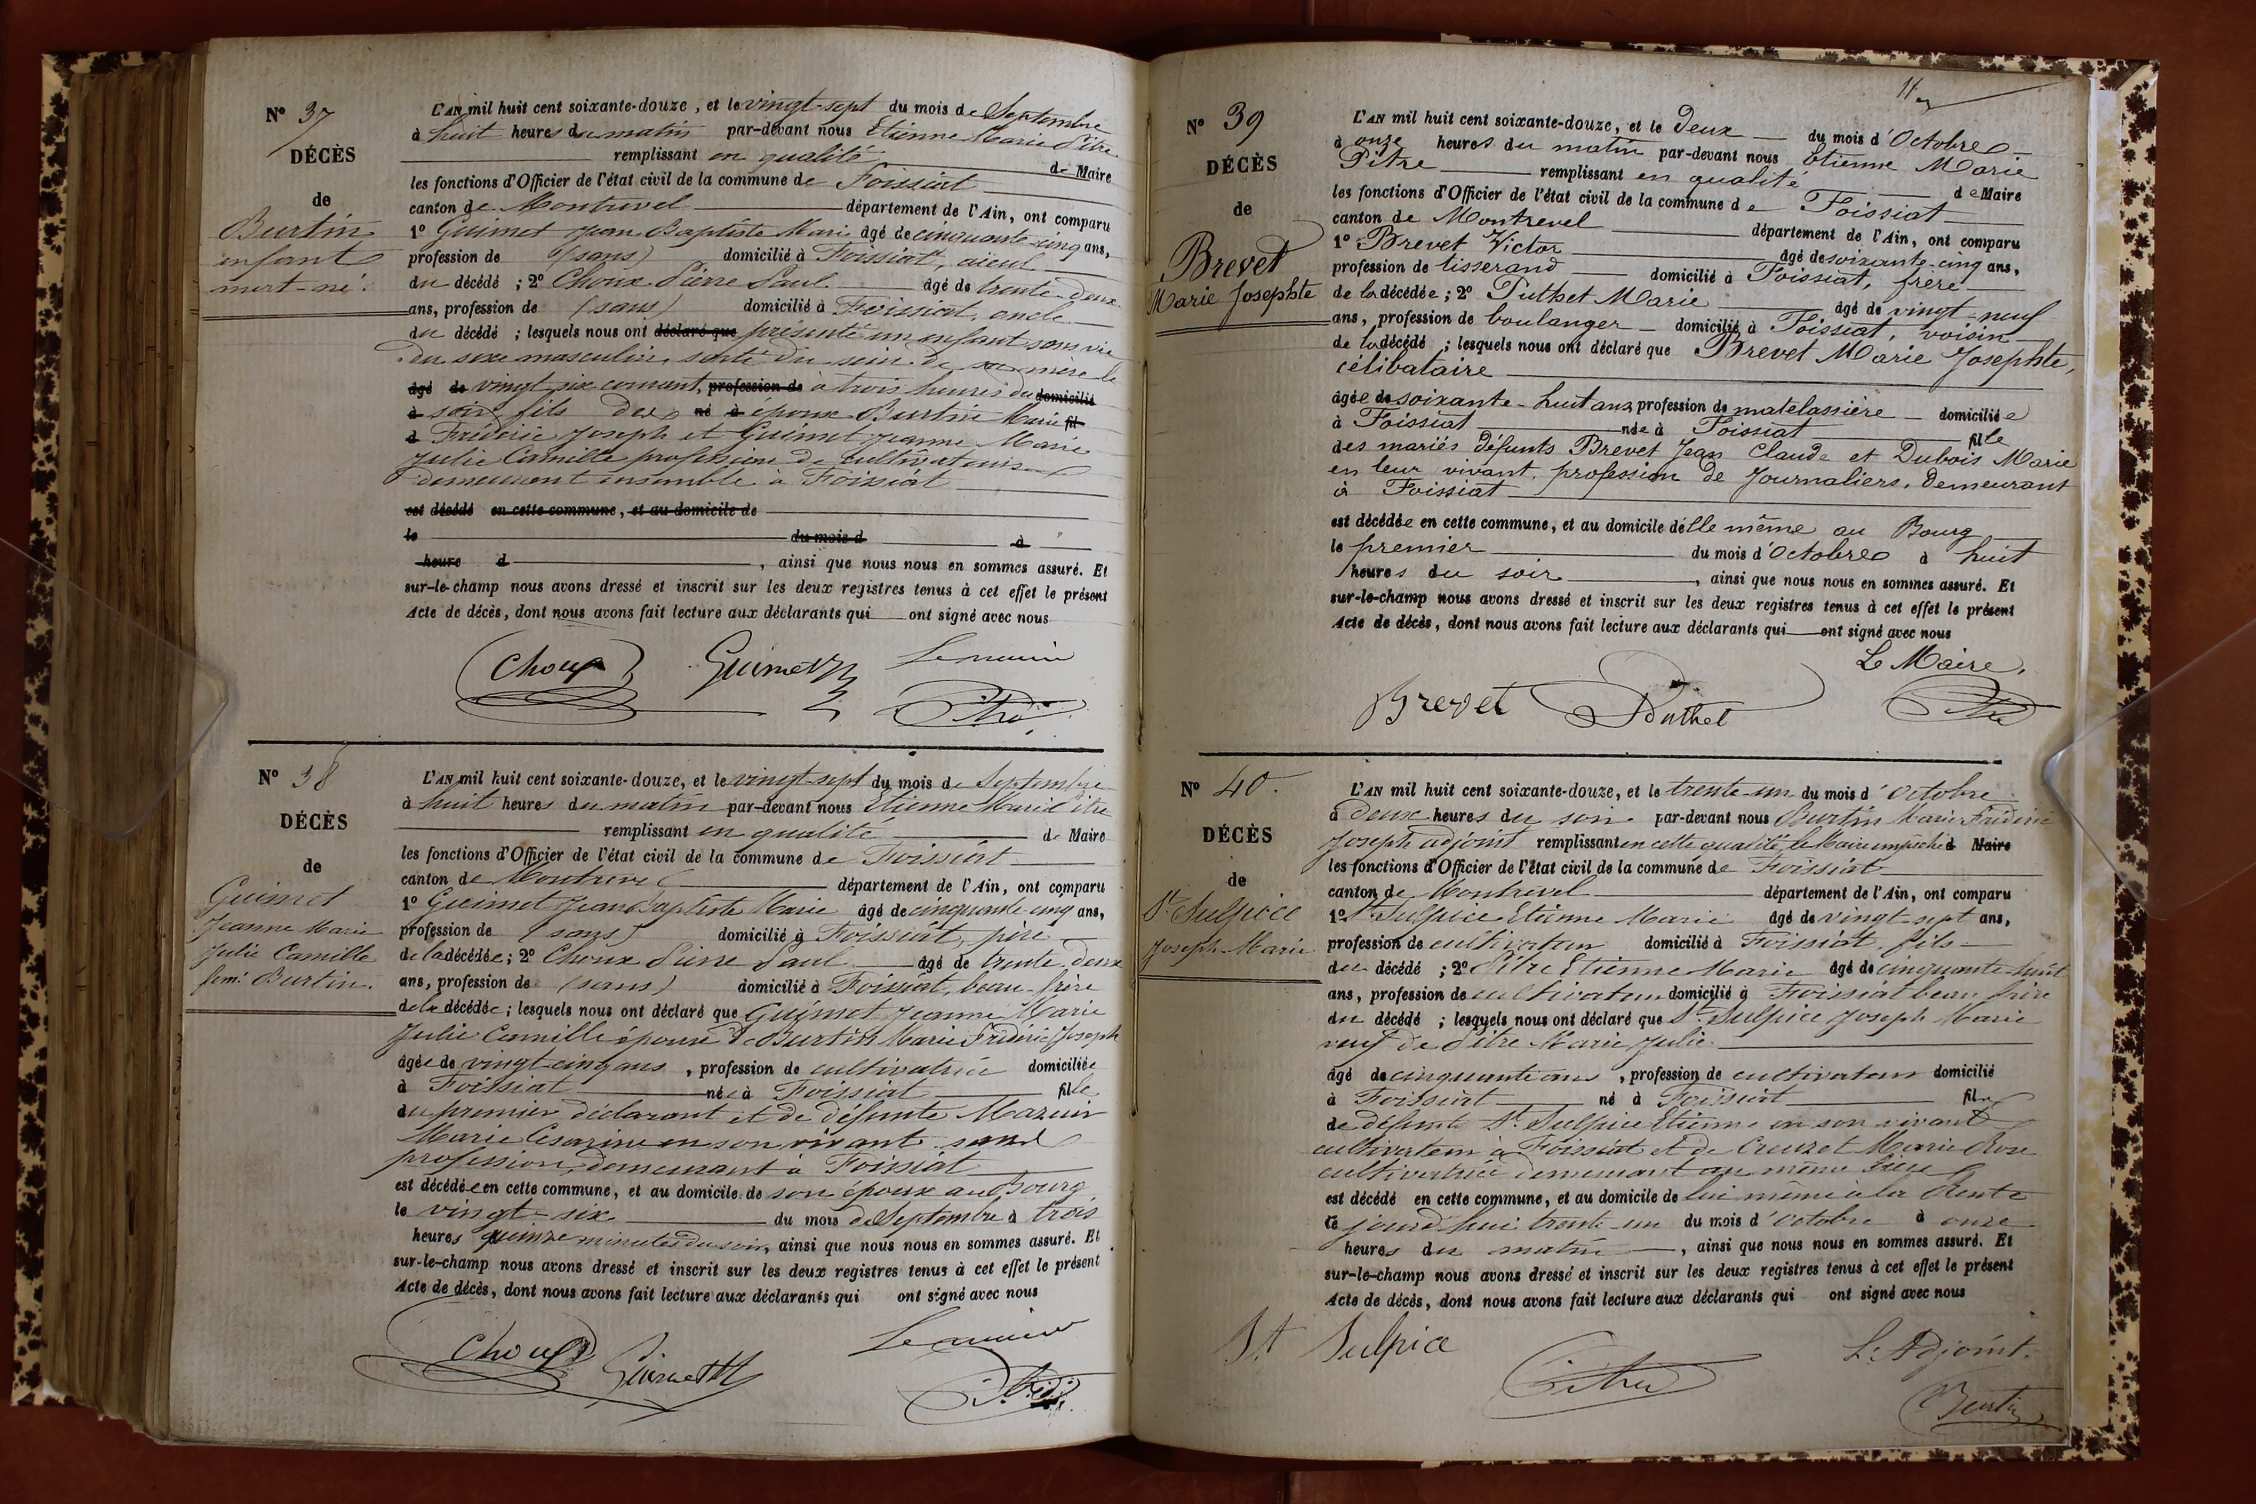 N° 37
DÉCÈS
de
Burtin
enfant
mort-né.
L'AN mil huit cent soixante-douze, et le vingt-sept du mois de Septembre
à huit heures du matin par-devant nous Etienne Marie Pitre
remplissant en qualité de Maire
les fonctions d'Officier de l'état civil de la commune de Foissiat
canton de Montrevel département de l'Ain, ont comparu
1° Guimet Jean Baptiste Marie âgé de cinquante-cinq ans,
profession de (sans) domicilié à Foissiat, aieul
du décédé ; 2° Choux Pierre Paul âgé de trente-deux
ans, profession de (sans) domicilié à Foissiat, oncle
du décédé ; lesquels nous ont déclaré que présenté un enfant sans vie
du sexe masculin, sorti du sein de sa mère le
âgé de vingt-six courant, profession de à trois heures du domicilié
à soir, fils des né à époux Burtin Marie fil
à Fréderic Joseph et Guimet Jeanne Marie
Julie Camille profession de cultivateurs
demeurant ensemble à Foissiat
est décédé en cette commune, et au domicile de
le du mois d à
heure d , ainsi que nous nous en sommes assuré. Et
sur-le-champ nous avons dressé et inscrit sur les deux registres tenus à cet effet le présent
Acte de décès, dont nous avons fait lecture aux déclarants qui ont signé avec nous
Choux Guimet Le maire
Pitre
N° 38
DÉCÈS
de
Guimet
Jeanne Marie
Julie Camille
fem. Burtin.
L'AN mil huit cent soixante-douze, et le vingt-sept du mois de Septembre
à huit heures du matin par-devant nous Etienne Marie Pitre
remplissant en qualité de Maire
les fonctions d'Officier de l'état civil de la commune de Foissiat
canton de Montrevel département de l'Ain, ont comparu
1° Guimet Jean Baptiste Marie âgé de cinquante-cinq ans,
profession de (sans) domicilié à Foissiat, père
de la décédée ; 2° Choux Pierre Paul âgé de trente deux
ans, profession de (sans) domicilié à Foissiat, beau-frère
de la décédée ; lesquels nous ont déclaré que Guimet Jeanne Marie
Julie Camille épouse de Burtin Marie Fréderic Joseph
âgée de vingt-cinq ans, profession de cultivatrice domiciliée
à Foissiat née à Foissiat fille
du premier déclarant et de défunte Mazuir
Marie Cesarine en son vivant sans
profession, demeurant à Foissiat
est décédée en cette commune, et au domicile de son époux au Bourg
le vingt-six du mois de Septembre à trois
heures quinze minutes du soir, ainsi que nous nous en sommes assuré. Et
sur-le-champ nous avons dressé et inscrit sur les deux registres tenus à cet effet le présent
Acte de décès, dont nous avons fait lecture aux déclarants qui ont signé avec nous
Choux Guimet Le maire
Pitre
N° 39
DÉCÈS
de
Brevet
Marie Josephte
L'AN mil huit cent soixante-douze, et le deux du mois d'Octobre
à onze heures du matin par-devant nous Etienne Marie
Pitre remplissant en qualité de Maire
les fonctions d'Officier de l'état civil de la commune de Foissiat
canton de Montrevel département de l'Ain, ont comparu
1° Brevet Victor âgé de soixante-cinq ans,
profession de tisserand domicilié à Foissiat, frère
de la décédée ; 2° Puthet Marie âgé de vingt-neuf
ans, profession de boulanger domicilié à Foissiat, voisin
de la décédé ; lesquels nous ont déclaré que Brevet Marie Josephte,
célibataire
âgée de soixante-huit ans, profession de matelassière domiciliée
à Foissiat née à Foissiat fille
des mariés défunts Brevet Jean Claude et Dubois Marie
en leur vivant, profession de Journaliers, demeurant
à Foissiat
est décédée en cette commune, et au domicile d'elle même au Bourg
le premier du mois d'Octobre à huit
heures du soir , ainsi que nous nous en sommes assuré. Et
sur-le-champ nous avons dressé et inscrit sur les deux registres tenus à cet effet le présent
Acte de décès, dont nous avons fait lecture aux déclarants qui ont signé avec nous
Le Maire,
Brevet Puthet Pitre
N° 40.
DÉCÈS
de
St Sulpice
Joseph Marie
L'AN mil huit cent soixante-douze, et le trente-un du mois d'Octobre
à deux heures du soir par-devant nous Burtin Marie Fréderic
Joseph adjoint remplissant en cette qualité, le Maire empêché d Maire
les fonctions d'Officier de l'état civil de la commune de Foissiat
canton de Montrevel département de l'Ain, ont comparu
1° St Sulpice Etienne Marie âgé de vingt-sept ans,
profession de cultivateur domicilié à Foissiat, fils
du décédé ; 2° Pitre Etienne Marie âgé de cinquante-huit
ans, profession de cultivateur domicilié à Foissiat beau frère
du décédé ; lesquels nous ont déclaré que St Sulpice Joseph Marie
veuf de Pitre Marie Julie
âgé de cinquante ans, profession de cultivateur domicilié
à Foissiat né à Foissiat fils
de défunt St Sulpice Etienne en son vivant
cultivateur à Foissiat et de Creuzet Marie Rose
cultivatrice demeurant au même lieu
est décédé en cette commune, et au domicile de lui même à la
le jourd'hui trente-un du mois d'octobre à onze
heures du matin , ainsi que nous nous en sommes assuré. Et
sur-le-champ nous avons dressé et inscrit sur les deux registres tenus à cet effet le présent
Acte de décès, dont nous avons fait lecture aux déclarants qui ont signé avec nous
St Sulpice Pitre L'Adjoint.
Burtin